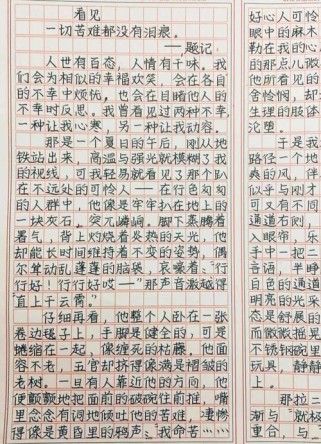 看见
一切苦难都没有泪痕。
——题记：
人世有百态，人情有千味。我
们会为相似的幸福欢笑，会在各自
的不幸中烦忧，也会在目睹他人的
不幸时反思。我曾看见过两种不幸，
一种让我心寒，另一种让我动容。
那是一个夏日的午后，刚从地
铁站出来，高温与强光就模糊了我
的视线，可我轻易就看见了那个趴
在不远处的可怜人——在行色匆匆
的人群中，他像是牢牢扒在地上的
一块灰石。突兀嶙峋。脚下蒸腾着
暑气，背上灼烧着炎热的天光，他
却能长时间维持着不变的姿势，偶
尔耸动乱蓬蓬的脑袋，哀嚎着：“行
行好！行行好哎——”那声音激越得
“直上干云霄。”
仔细再看，他整个人卧在一张
卷边毯子上，手脚是健全的，可是
蜷缩在一起，像缠死的枯藤。他面
容不老，五官却挤得像满是褶皱的
老树。一旦有人靠近他的方向，他
便颤颤地把面前的破碗往前推，嘴
里念念有词地倾吐他的苦难，凄惨
得像是黄昏里的鸦声：“我命苦——
好心人可怜
眼中的麻木
勒在我的心
的那点儿微
他所看见的
舍怜悯，却
生理的肢体
沱塑。
于是我
路径一个地
爽的风，伴
似乎与刚才
可又有不同
通道右侧，
入眼帘，乐
手中一把二
音语，半睁
白色的通道
明亮的光采
态是舒展的
而微微摇晃
不锈钢碗里
玩具，静静
上。
那拉二
渐与
重合、与